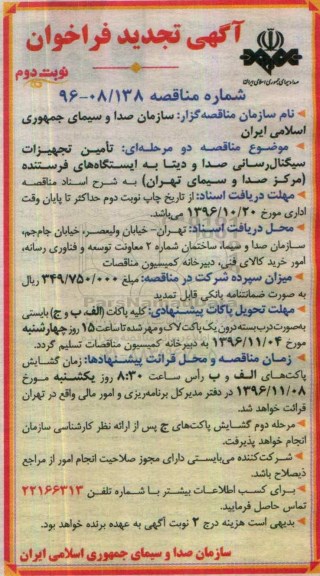 آگهی تجدید فراخوان
نوبت دوم
صدا و سیمای جمهوری اسلامی ایران
شماره مناقصه ۹۶-۰۸/۱۳۸
نام سازمان مناقصه‌گزار: سازمان صدا و سیمای جمهوری
اسلامی ایران
موضوع مناقصه دو مرحله‌ای: تأمین تجهیزات
سیگنال‌رسانی صدا و دیتا به ایستگاه‌های فرستنده
(مرکز صدا و سیمای تهران) به شرح اسناد مناقصه
مهلت دریافت اسناد: از تاریخ چاپ نوبت دوم حداکثر تا پایان وقت
اداری مورخ ۱۳۹۶/۱۰/۲۰ می‌باشد.
محل دریافت اسناد: تهران- خیابان ولیعصر، خیابان جام‌جم،
سازمان صدا و سیما، ساختمان شماره ۲ معاونت توسعه و فناوری رسانه،
امور خرید کالای فنی، دبیرخانه کمیسیون مناقصات
میزان سپرده شرکت در مناقصه: مبلغ ۳۴۹/۷۵۰/۰۰۰ ریال
به صورت ضمانتنامه بانکی قابل تمدید
مهلت تحویل پاکات پیشنهادی: کلیه پاکات (الف، ب و ج) بایستی
به‌صورت درب بسته درون یک پاکت لاک و مهر شده تا ساعت ۱۵ روز چهارشنبه
مورخ ۱۳۹۶/۱۱/۰۴ به دبیرخانه کمیسیون مناقصات تسلیم گردد.
زمان مناقصه و محل قرائت پیشنهادها: زمان گشایش
پاکت‌های الف و ب رأس ساعت ۸:۳۰ روز یکشنبه مورخ
۱۳۹۶/۱۱/۰۸ در دفتر مدیرکل برنامه‌ریزی و امور مالی واقع در تهران
قرائت خواهد شد.
مرحله دوم گشایش پاکت‌های ج پس از ارائه نظر کارشناسی سازمان
انجام خواهد پذیرفت.
شرکت‌کننده می‌بایستی دارای مجوز صلاحیت انجام امور از مراجع
ذیصلاح باشد.
برای کسب اطلاعات بیشتر با شماره تلفن ۲۲۱۶۶۳۱۳
تماس حاصل فرمایید.
بدیهی است هزینه درج ۲ نوبت آگهی به عهده برنده خواهد بود.
سازمان صدا و سیمای جمهوری اسلامی ایران